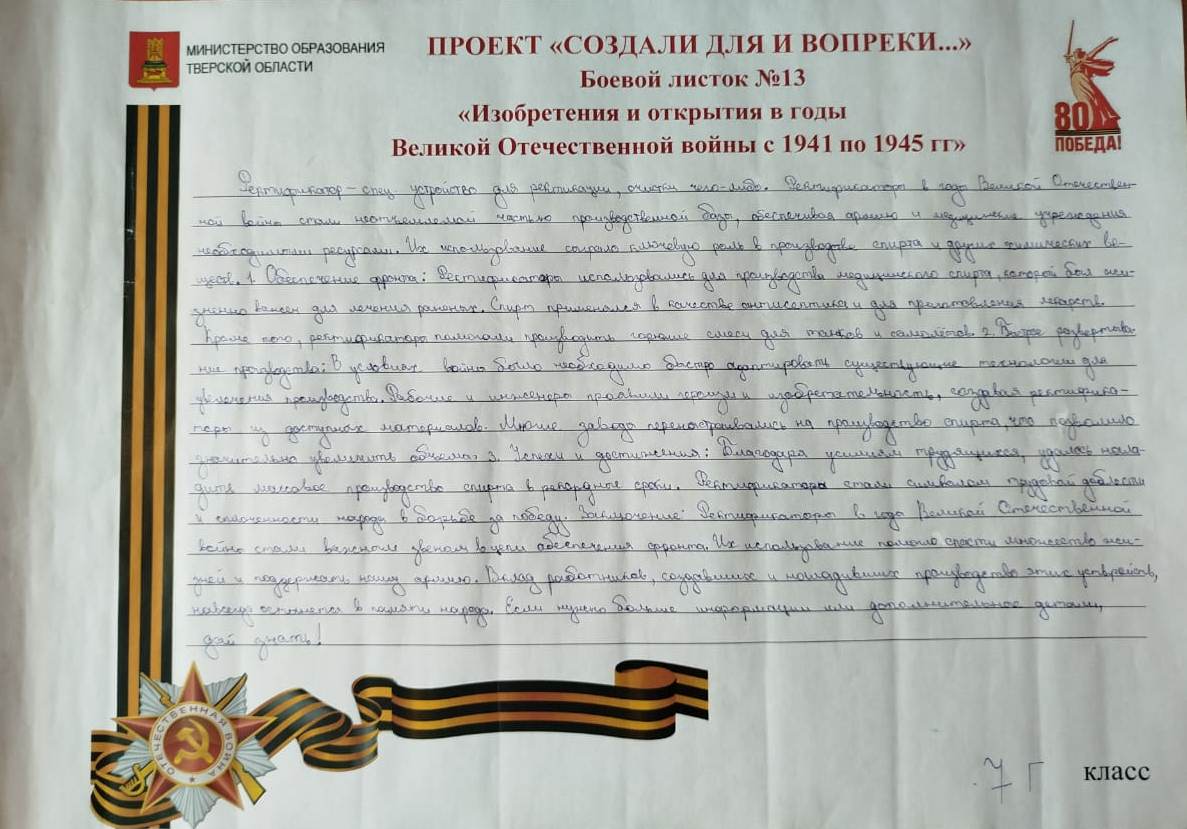 МИНИСТЕРСТВО ОБРАЗОВАНИЯ
ТВЕРСКОЙ ОБЛАСТИ
ПРОЕКТ «СОЗДАЛИ ДЛЯ И ВОПРЕКИ...»
Боевой листок №13
«Изобретения и открытия в годы
Великой Отечественной войны с 1941 по 1945 гг»
80
ПОБЕДА!
Ректификатор – спец. устройство для ректикации, очистки чего-либо. Ректификаторы в года Великой Отечествен-
ной войны стали неотъемлемой частью производственной базы, обеспечивая армию и медицинские учреждения
необходимыми ресурсами. Их использование сыграло ключевую роль в производстве спирта и других химических ве-
ществ. 1. Обеспечение фронта: Ректификаторы использовались для производства медицинского спирта, который был жи-
зненно важен для лечения раненых. Спирт применялся в качестве антисептика и для приготовления лекарств.
Кроме того, ректификаторы помогали производить горючие смеси для танков и самолётов. 2. Быстрое развертыва-
ние производства: В условиях войны было необходимо быстро адаптировать существующие технологии для
увеличения производства. Рабочие и инженеры проявили героизм и изобретательность, создавая ректифика-
торы из доступных материалов. Многие заводы перенастраивались на производство спирта, что позволило
значительно увеличить объемы. 3. Успехи и достижения: Благодаря усилиям трудящихся, удалось нала-
дить массовое производство спирта в рекордные сроки. Ректификаторы стали символом трудовой доблести
и сплоченности народа в борьбе за победу. Заключение: Ректификаторы в года Великой Отечественной
войны стали важным звеном в цепи обеспечения фронта. Их использование помогло спасти множество жи-
зней и поддержать нашу армию. Вклад работников, создавших и наладивших производство этих устройств,
навсегда останется в памяти народа. Если нужно больше информации или дополнительные детали,
дай знать!
ОТЕЧЕСТВЕННАЯ ВОЙНА
7 Г класс